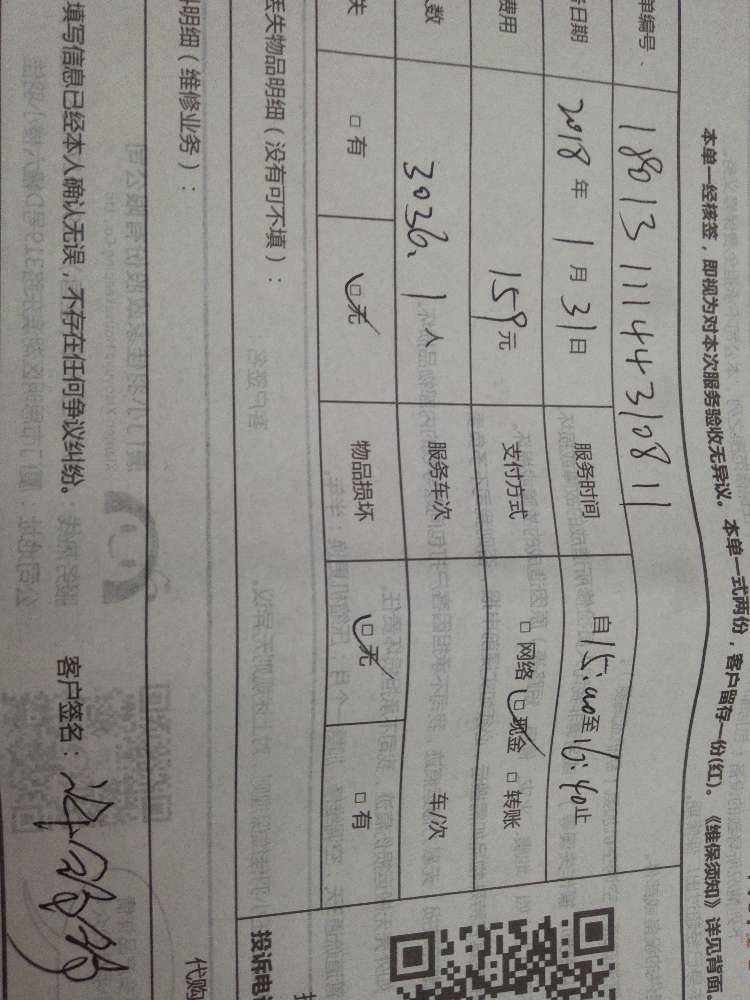 本单一经核签，即视为对本次服务验收无异议。本单一式两份，客户留存一份(红)。《维保须知》详见背面
单编号 1801311144310811
日期 2018年1月31日 服务时间 自15:00至16:40止
费用 159元 支付方式 □网络 ☑现金 □转账
人数 3036、1人 服务车次 车/次
失 □有 ☑无 物品损坏 ☑无 □有
丢失物品明细（没有可不填）：
明细（维修业务）：
填写信息已经本人确认无误，不存在任何争议纠纷。 客户签名：
投诉电
代购